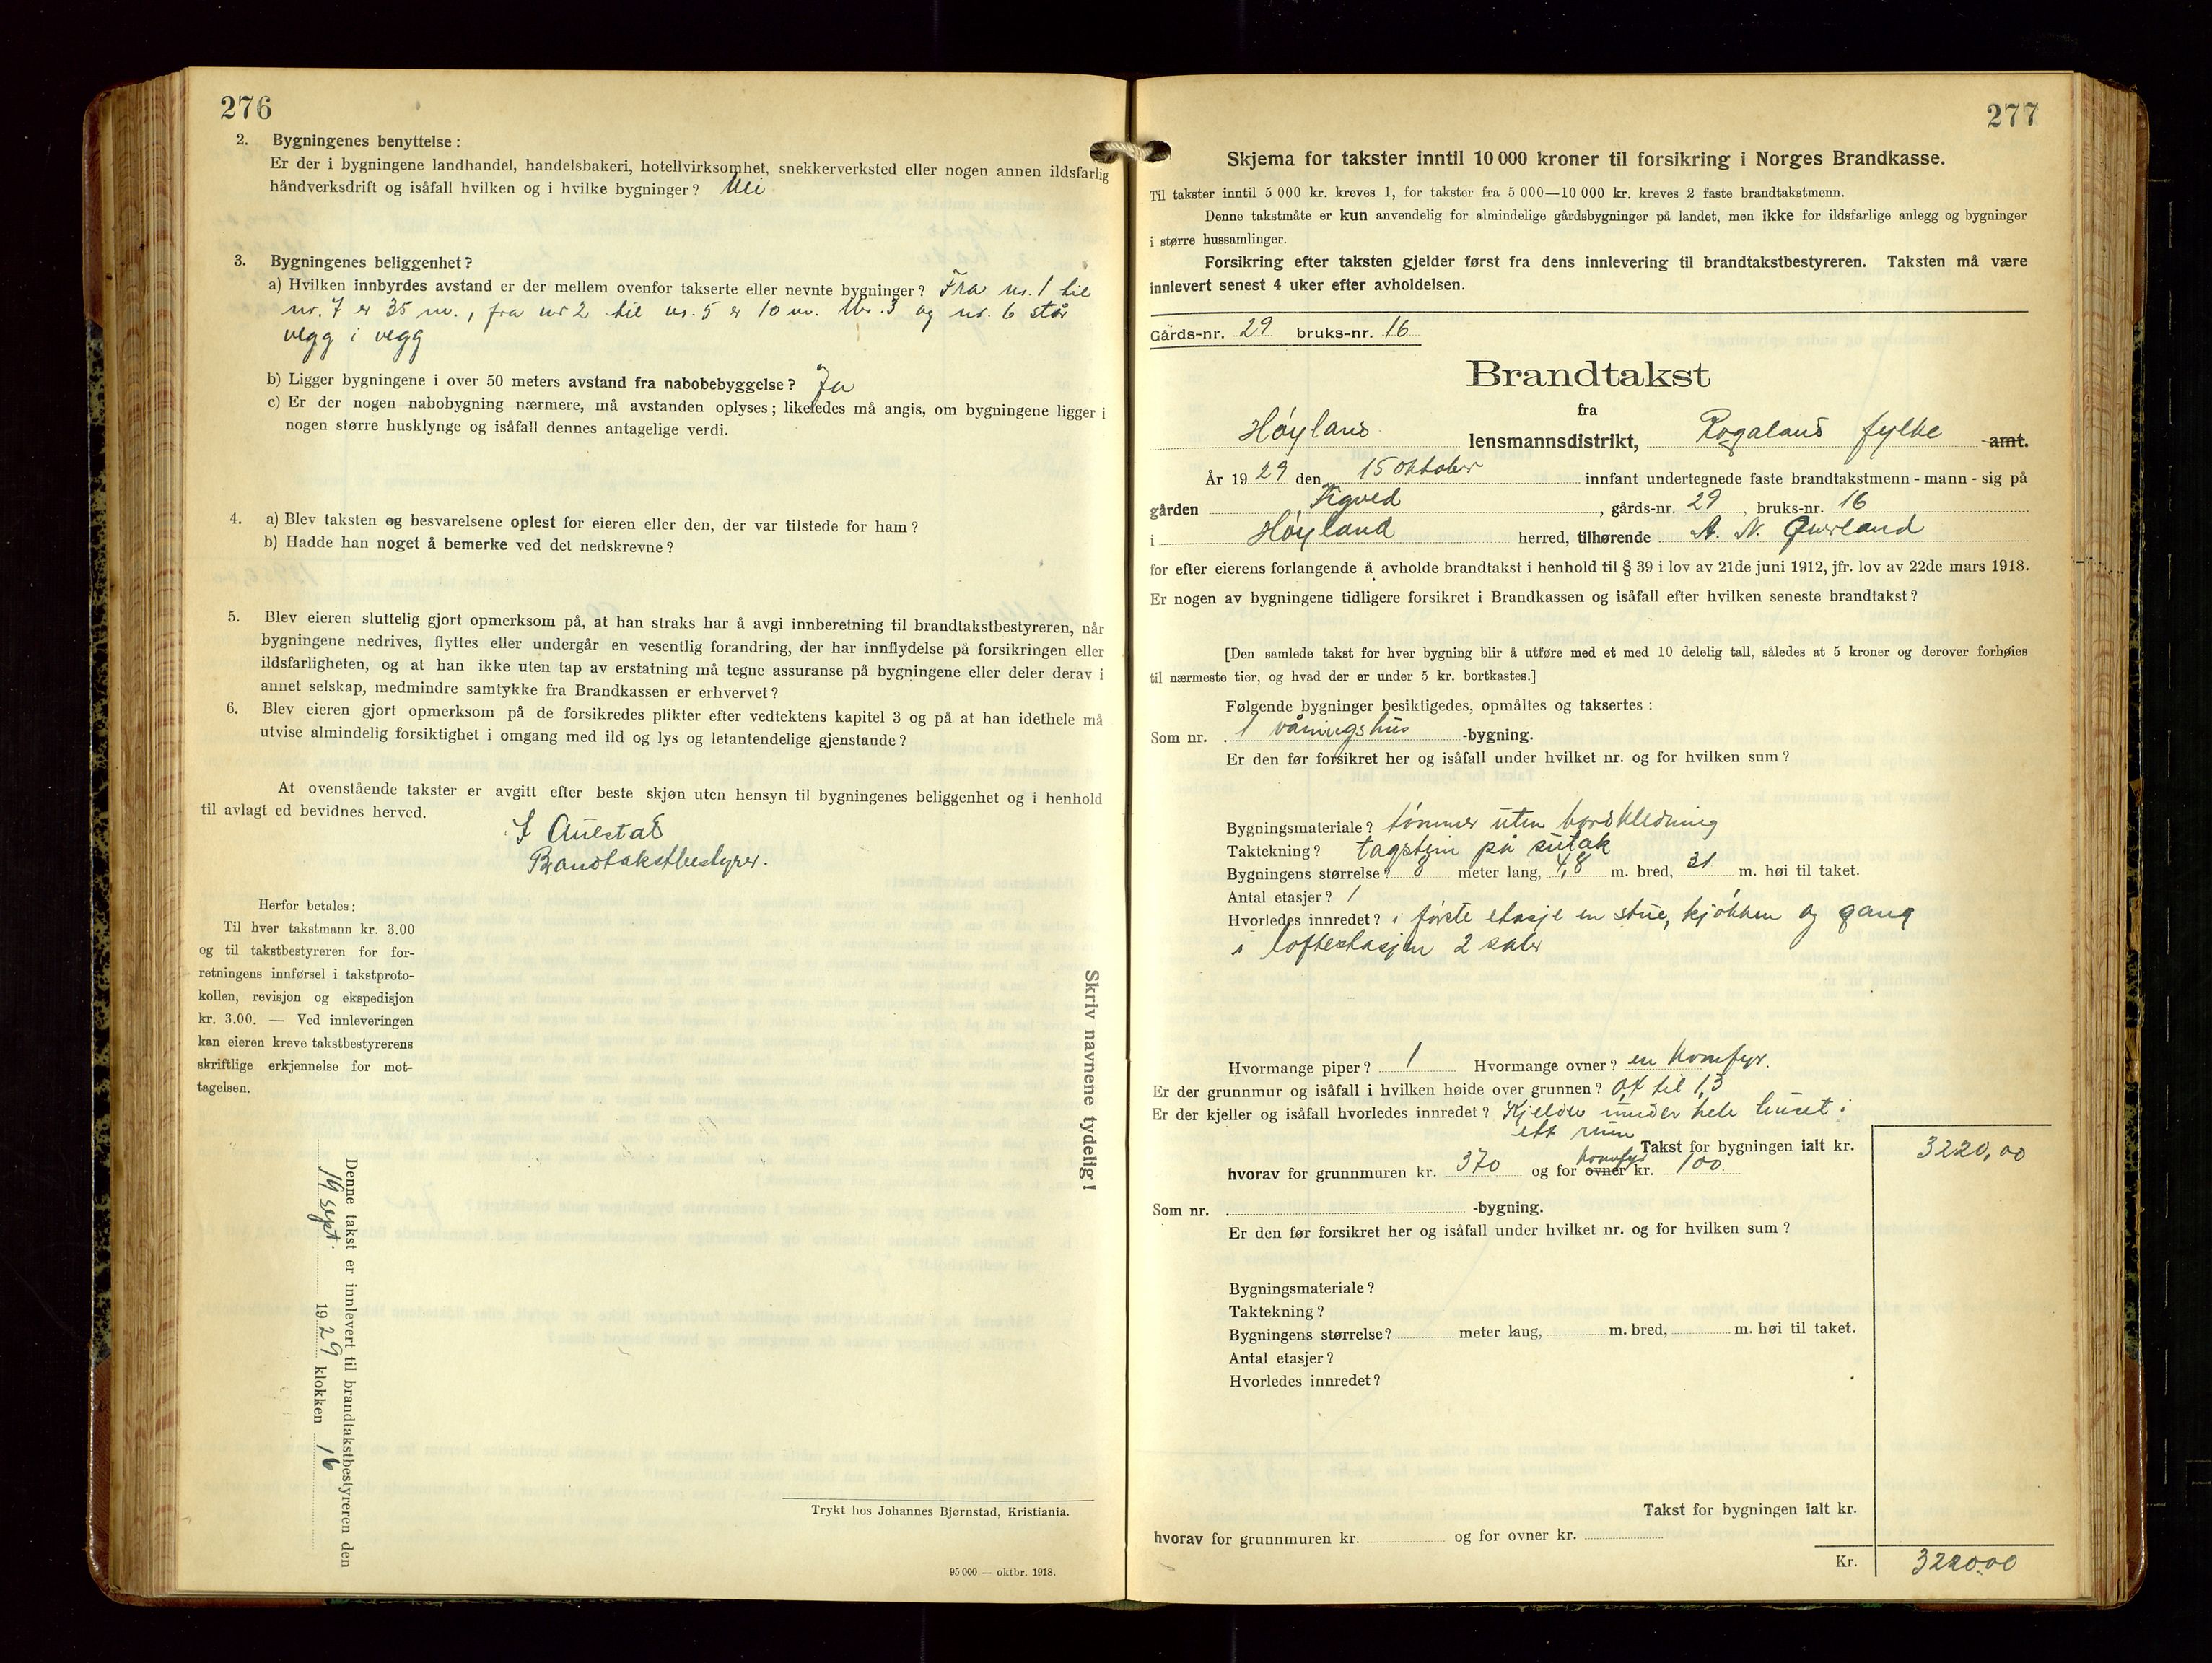 276
2. Bygningenes benyttelse:
Er der i bygningene landhandel, handelsbakeri, hotellvirksomhet, snekkerverksted eller nogen annen ildsfarlig
håndverksdrift og isåfall hvilken og i hvilke bygninger? Nei
3. Bygningenes beliggenhet?
a) Hvilken innbyrdes avstand er der mellem ovenfor takserte eller nevnte bygninger? Fra nr. 1 til
nr. 7 er 35 m., fra nr 2 til nr. 5 er 10 m. Nr. 3 og nr. 6 står
vegg i vegg
b) Ligger bygningene i over 50 meters avstand fra nabobebyggelse? Ja
c) Er der nogen nabobygning nærmere, må avstanden oplyses; likeledes må angis, om bygningene ligger i
nogen større husklynge og isåfall dennes antagelige verdi.
4. a) Blev taksten og besvarelsene oplest for eieren eller den, der var tilstede for ham?
b) Hadde han noget å bemerke ved det nedskrevne?
5. Blev eieren sluttelig gjort opmerksom på, at han straks har å avgi innberetning til brandtakstbestyreren, når
bygningene nedrives, flyttes eller undergår en vesentlig forandring, der har innflydelse på forsikringen eller
ildsfarligheten, og at han ikke uten tap av erstatning må tegne assuranse på bygningene eller deler derav i
annet selskap, medmindre samtykke fra Brandkassen er erhvervet?
6. Blev eieren gjort opmerksom på de forsikredes plikter efter vedtektens kapitel 3 og på at han idethele må
utvise almindelig forsiktighet i omgang med ild og lys og letantendelige gjenstande?
At ovenstående takster er avgitt efter beste skjøn uten hensyn til bygningenes beliggenhet og i henhold
til avlagt ed bevidnes herved.
Auestad
Brandtakstbestyrer.
Herfor betales:
Til hver takstmann kr. 3.00
og til takstbestyreren for for-
retningens innførsel i takstproto-
kollen, revisjon og ekspedisjon
kr. 3.00. — Ved innleveringen
kan eieren kreve takstbestyrerens
skriftlige erkjennelse for mot-
tagelsen.
Skriv navnene tydelig!
Denne takst er innlevert til brandtakstbestyreren den
19 sept. 1929 klokken 16
Trykt hos Johannes Bjørnstad, Kristiania.
95 000 — oktbr. 1918.
277
Skjema for takster inntil 10 000 kroner til forsikring i Norges Brandkasse.
Til takster inntil 5 000 kr. kreves 1, for takster fra 5 000—10 000 kr. kreves 2 faste brandtakstmenn.
Denne takstmåte er kun anvendelig for almindelige gårdsbygninger på landet, men ikke for ildsfarlige anlegg og bygninger
i større hussamlinger.
Forsikring efter taksten gjelder først fra dens innlevering til brandtakstbestyreren. Taksten må være
innlevert senest 4 uker efter avholdelsen.
Gårds-nr. 29 bruks-nr. 16
Brandtakst
fra
Høyland lensmannsdistrikt, Rogaland fylke amt.
År 1929 den 15 oktober innfant undertegnede faste brandtakstmenn - mann - sig på
gården Figved, gårds-nr. 29, bruks-nr. 16
i Høyland herred, tilhørende A. N. Qverland
for efter eierens forlangende å avholde brandtakst i henhold til § 39 i lov av 21de juni 1912, jfr. lov av 22de mars 1918.
Er nogen av bygningene tidligere forsikret i Brandkassen og isåfall efter hvilken seneste brandtakst?
[Den samlede takst for hver bygning blir å utføre med et med 10 delelig tall, således at 5 kroner og derover forhøies
til nærmeste tier, og hvad der er under 5 kr. bortkastes.]
Følgende bygninger besiktigedes, opmåltes og taksertes:
Som nr. 1 våningshus -bygning.
Er den før forsikret her og isåfall under hvilket nr. og for hvilken sum?
Bygningsmateriale? tømmer uten bordkledning
Taktekning? tagstein på sutak
Bygningens størrelse? 8 meter lang, 4,8 m. bred, 31 m. høi til taket.
Antal etasjer? 1
Hvorledes innredet? i første etasje en stue, kjøkken og gang
i loftsetasjen 2 saler
Hvormange piper? 1 Hvormange ovner? en komfyr.
Er der grunnmur og isåfall i hvilken høide over grunnen? 0,4 til 1,3
Er der kjeller og isåfall hvorledes innredet? Kjelder under hele huset i
ett rum
Takst for bygningen ialt kr. 3220,00
hvorav for grunnmuren kr. 370 og for ovner komfyr kr. 100.
Som nr. -bygning.
Er den før forsikret her og isåfall under hvilket nr. og for hvilken sum?
Bygningsmateriale?
Taktekning?
Bygningens størrelse? meter lang, m. bred, m. høi til taket.
Antal etasjer?
Hvorledes innredet?
Takst for bygningen ialt kr.
hvorav for grunnmuren kr. og for ovner kr.
Kr. 3220.00